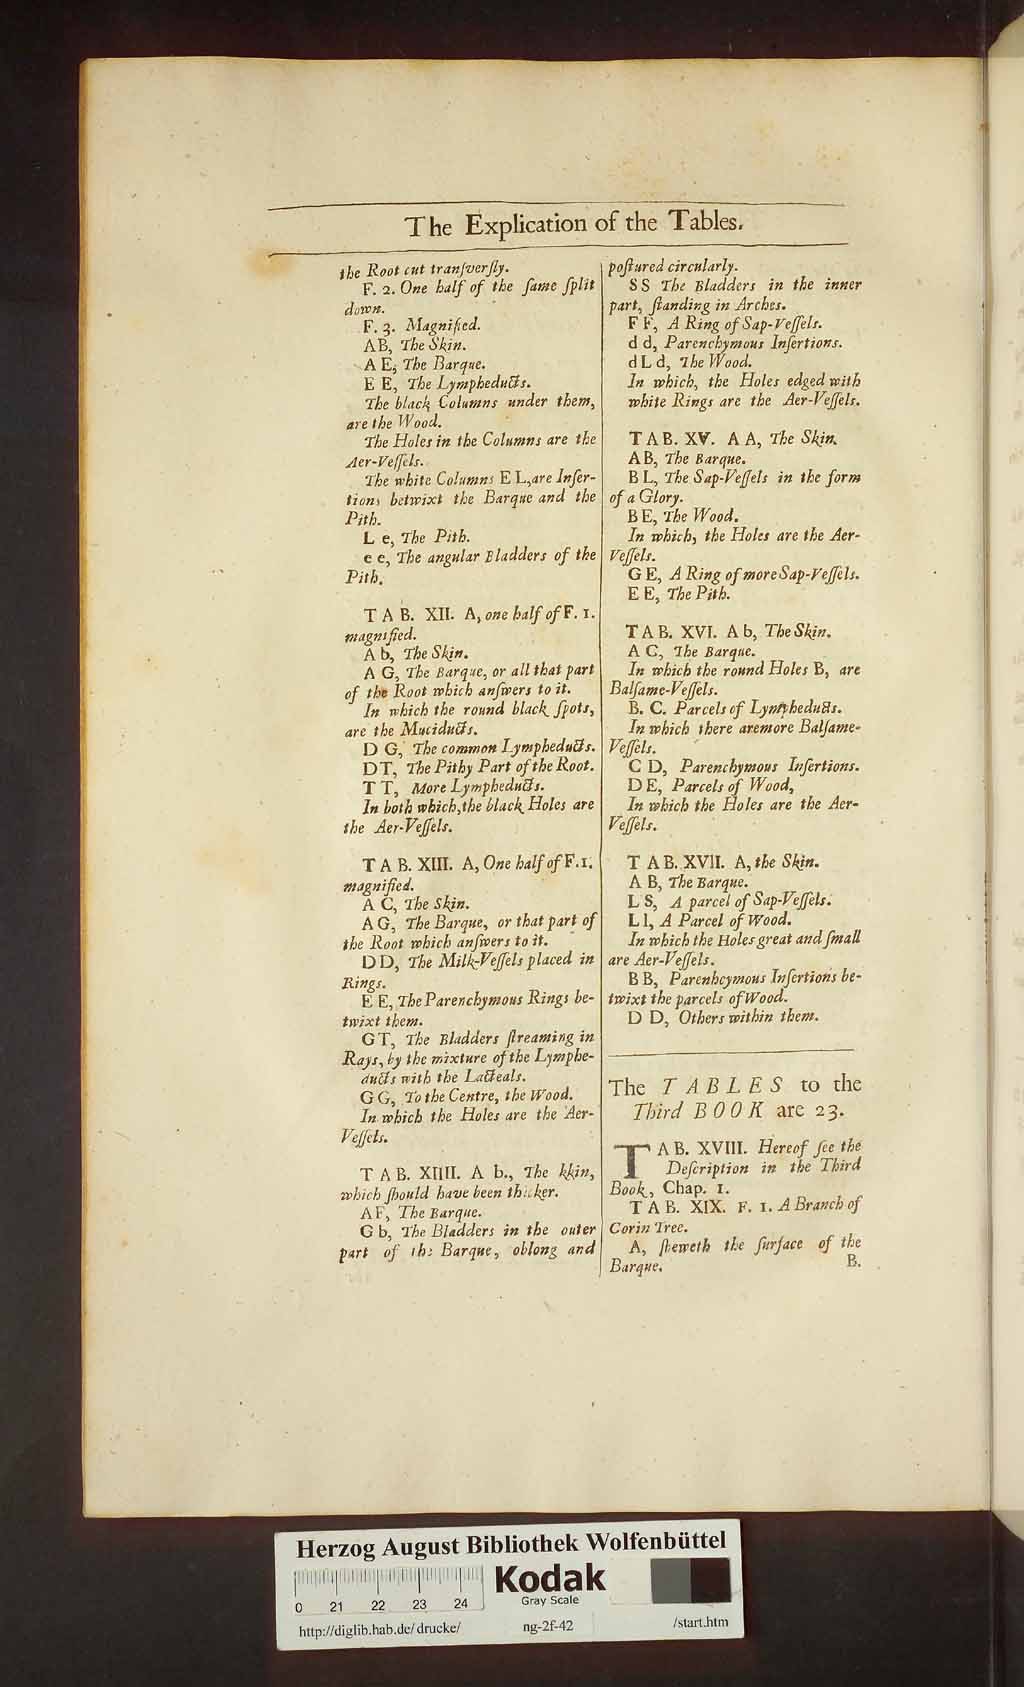 The Explication of the Tables.
the Root cut tranſverſly.
F. 2. One half of the ſame ſplit
down.
F. 3. Magnified.
AB, The Skin.
A E, The Barque.
E E, The Lympheducts.
The black Columns under them,
are the Wood.
The Holes in the Columns are the
Aer-Veſſels.
The white Columns E L, are Inſer-
tions betwixt the Barque and the
Pith.
L e, The Pith.
e e, The angular Bladders of the
Pith.
T A B. XII. A, one half of F. 1.
magnified.
A b, The Skin.
A G, The Barque, or all that part
of the Root which anſwers to it.
In which the round black ſpots,
are the Muciducts.
D G, The common Lympheducts.
D T, The Pithy Part of the Root.
T T, More Lympheducts.
In both which, the black Holes are
the Aer-Veſſels.
T A B. XIII. A, One half of F. 1.
magnified.
A C, The Skin.
A G, The Barque, or that part of
the Root which anſwers to it.
D D, The Milk-Veſſels placed in
Rings.
E E, The Parenchymous Rings be-
twixt them.
G T, The Bladders ſtreaming in
Rays, by the mixture of the Lymphe-
ducts with the Lacteals.
G G, To the Centre, the Wood.
In which the Holes are the Aer-
Veſſels.
T A B. XIIII. A b., The kkin,
which ſhould have been thicker.
A F, The Barque.
G b, The Bladders in the outer
part of the Barque, oblong and
poſtured circularly.
S S The Bladders in the inner
part, ſtanding in Arches.
F F, A Ring of Sap-Veſſels.
d d, Parenchymous Inſertions.
d L d, The Wood.
In which, the Holes edged with
white Rings are the Aer-Veſſels.
T A B. XV. A A, The Skin.
A B, The Barque.
B L, The Sap-Veſſels in the form
of a Glory.
B E, The Wood.
In which, the Holes are the Aer-
Veſſels.
G E, A Ring of more Sap-Veſſels.
E E, The Pith.
T A B. XVI. A b, The Skin.
A C, The Barque.
In which the round Holes B, are
Balſame-Veſſels.
B. C. Parcels of Lympheducts.
In which there are more Balſame-
Veſſels.
C D, Parenchymous Inſertions.
D E, Parcels of Wood,
In which the Holes are the Aer-
Veſſels.
T A B. XVII. A, the Skin.
A B, The Barque.
L S, A parcel of Sap-Veſſels.
L l, A Parcel of Wood.
In which the Holes great and ſmall
are Aer-Veſſels.
B B, Parenhcymous Inſertions be-
twixt the parcels of Wood.
D D, Others within them.
The TABLES to the
Third BOOK are 23.
TAB. XVIII. Hereof ſee the
Deſcription in the Third
Book, Chap. 1.
T A B. XIX. F. 1. A Branch of
Corin Tree.
A, ſheweth the ſurface of the
Barque.
B.
Herzog August Bibliothek Wolfenbüttel
Kodak
Gray Scale
0 21 22 23 24
http://diglib.hab.de/drucke/ ng-2f-42 /start.htm